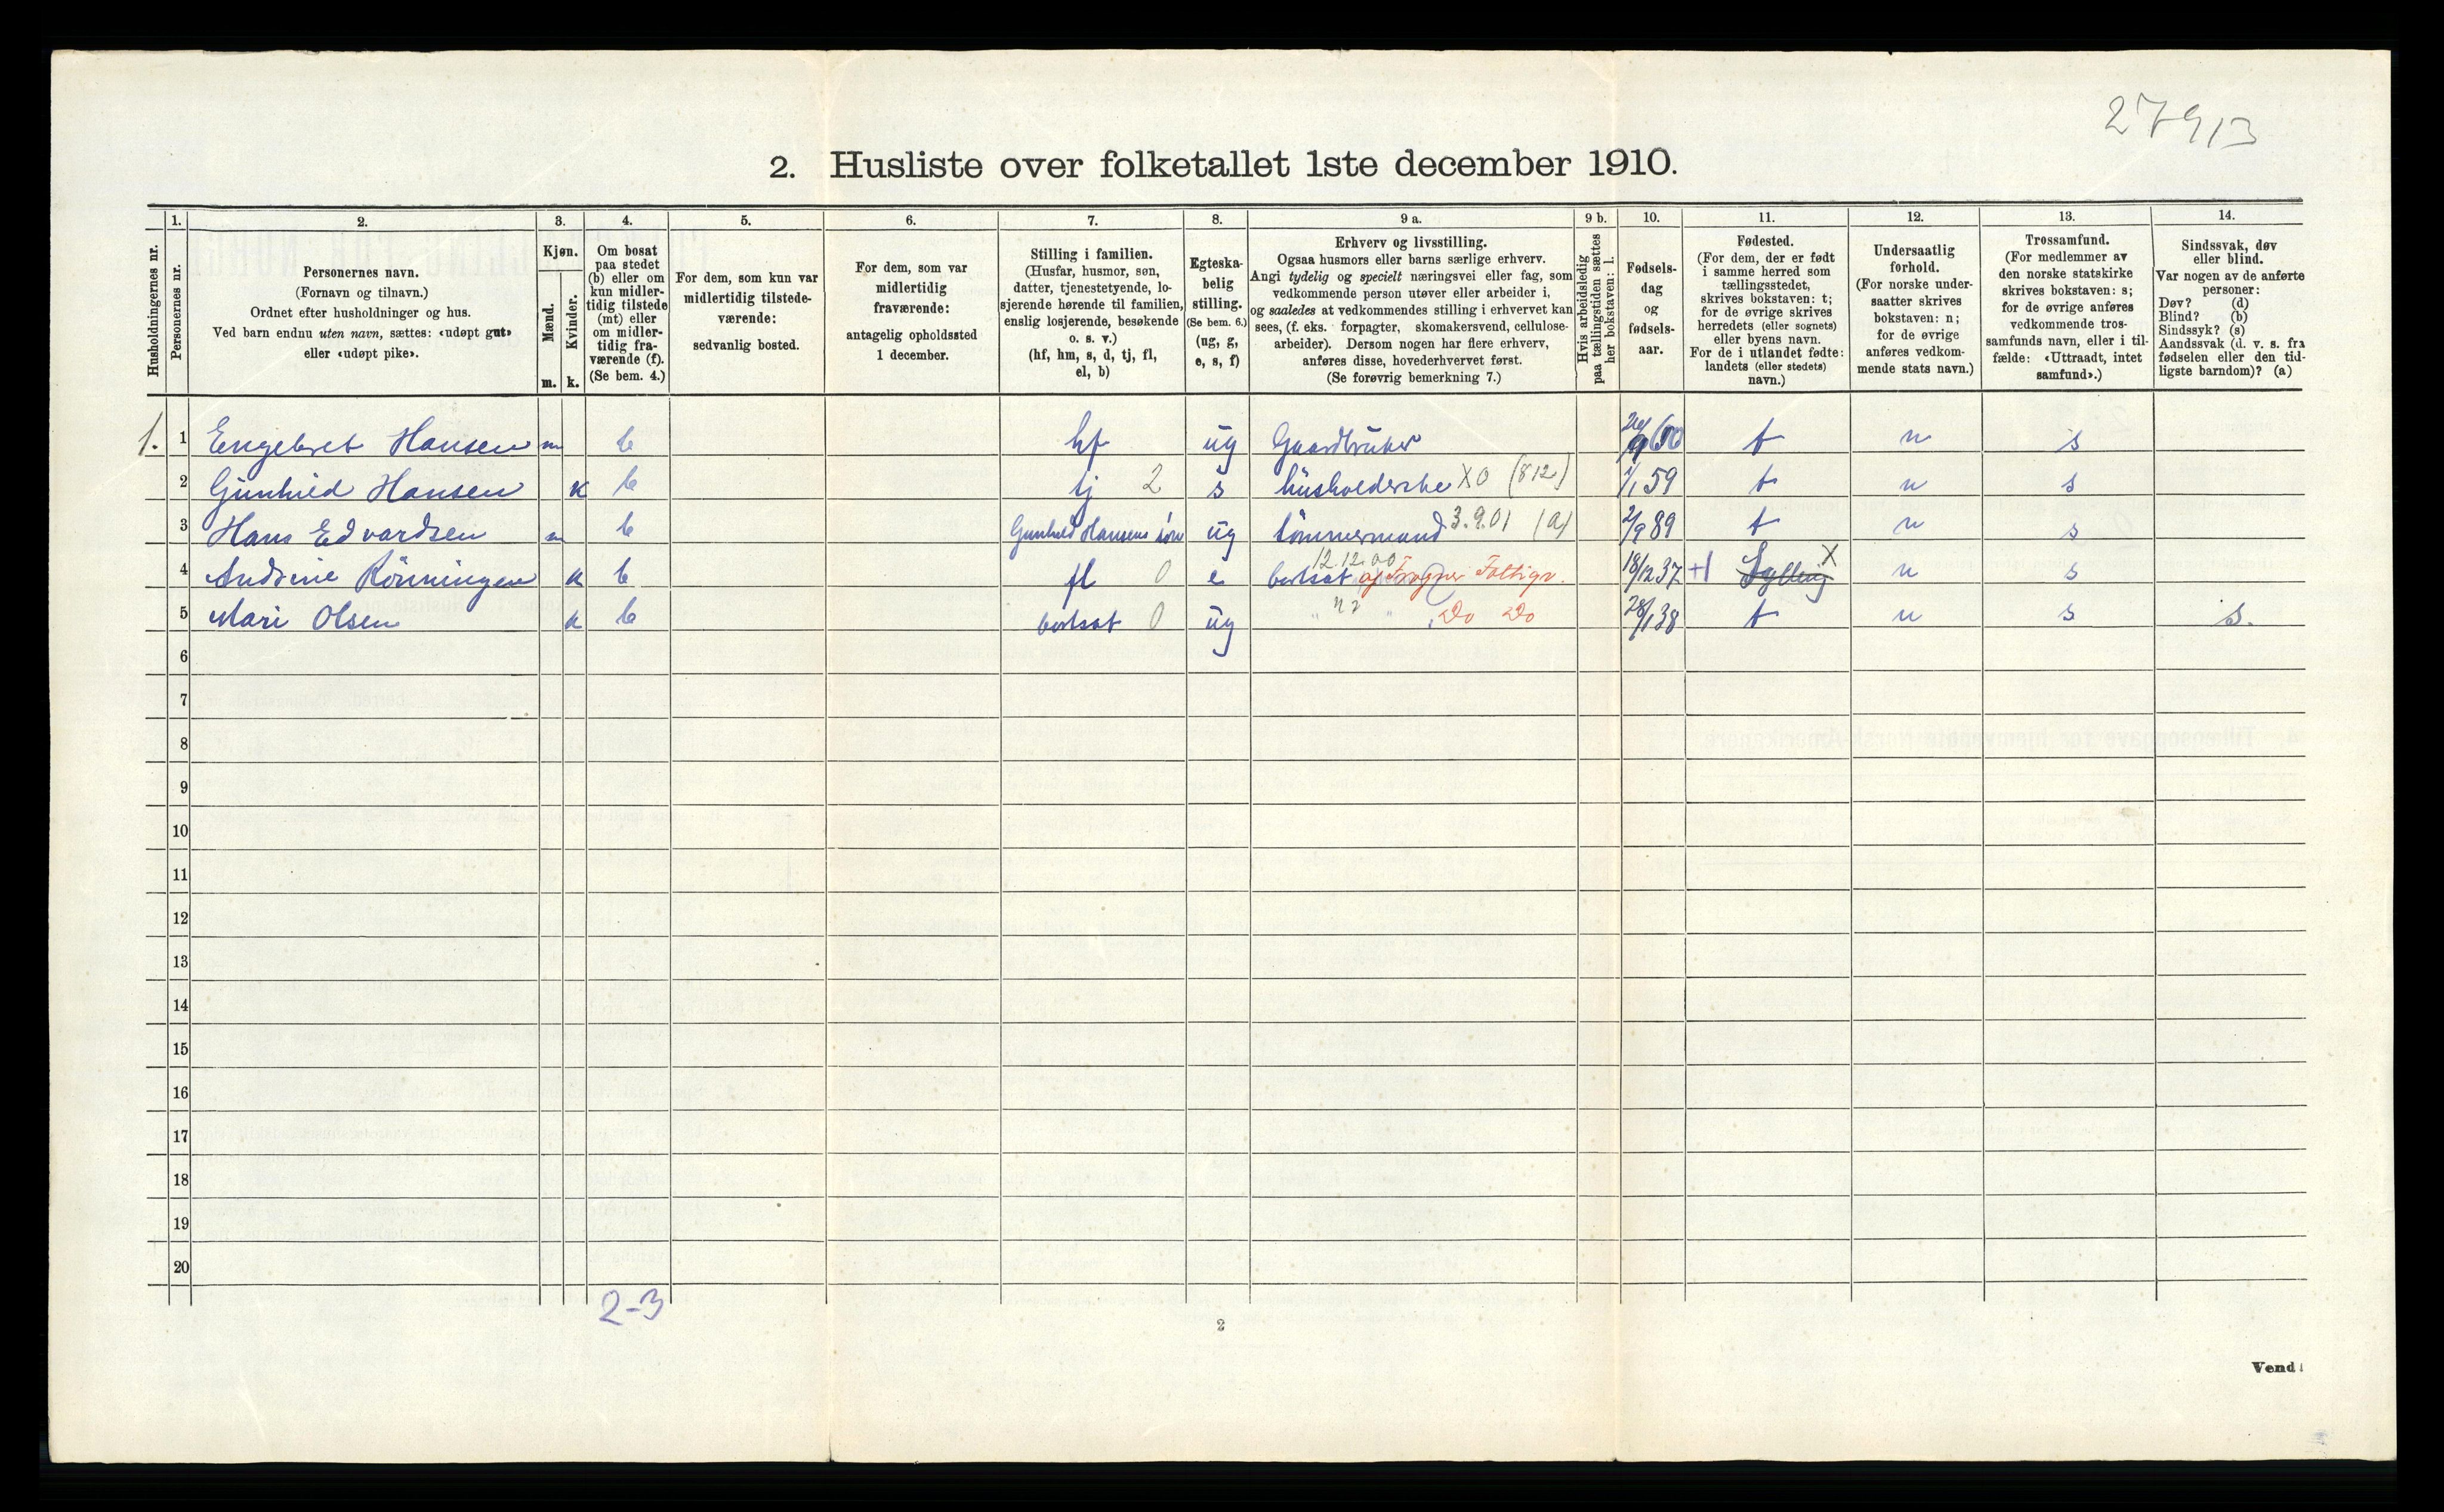 27913
2. Husliste over folketallet 1ste december 1910.
Husholdningernes nr.
1.
Personernes nr.
2.
Personernes navn.
(Fornavn og tilnavn.)
Ordnet efter husholdninger og hus.
Ved barn endnu uten navn, sættes: «udøpt gut»
eller «udøpt pike».
3.
Kjøn.
Mænd. Kvinder.
m. k.
4.
Om bosat
paa stedet
(b) eller om
kun midler-
tidig tilstede
(mt) eller
om midler-
tidig fra-
værende (f).
(Se bem. 4.)
5.
For dem, som kun var
midlertidig tilstede-
værende:
sedvanlig bosted.
6.
For dem, som var
midlertidig
fraværende:
antagelig opholdssted
1 december.
7.
Stilling i familien.
(Husfar, husmor, søn,
datter, tjenestetyende, lo-
sjerende hørende til familien,
enslig losjerende, besøkende
o. s. v.)
(hf, hm, s, d, tj, fl,
el, b)
8.
Egteska-
belig
stilling.
(Se bem. 6.)
(ug, g,
e, s, f)
9 a.
Erhverv og livsstilling.
Ogsaa husmors eller barns særlige erhverv.
Angi tydelig og specielt næringsvei eller fag, som
vedkommende person utøver eller arbeider i,
og saaledes at vedkommendes stilling i erhvervet kan
sees, (f. eks. forpagter, skomakersvend, cellulose-
arbeider). Dersom nogen har flere erhverv,
anføres disse, hovederhvervet først.
(Se forøvrig bemerkning 7.)
9 b.
Hvis arbeidsledig
paa tællingstiden sættes
her bokstaven: l.
10.
Fødsels-
dag
og
fødsels-
aar.
11.
Fødested.
(For dem, der er født
i samme herred som
tællingsstedet,
skrives bokstaven: t;
for de øvrige skrives
herredets (eller sognets)
eller byens navn.
For de i utlandet fødte:
landets (eller stedets)
navn.)
12.
Undersaatlig
forhold.
(For norske under-
saatter skrives
bokstaven: n;
for de øvrige
anføres vedkom-
mende stats navn.)
13.
Trossamfund.
(For medlemmer av
den norske statskirke
skrives bokstaven: s;
for de øvrige anføres
vedkommende tros-
samfunds navn, eller i til-
fælde: «Uttraadt, intet
samfund».)
14.
Sindssvak, døv
eller blind.
Var nogen av de anførte
personer:
Døv? (d)
Blind? (b)
Sindssyk? (s)
Aandssvak (d. v. s. fra
fødselen eller den tid-
ligste barndom)? (a)
1. 1 Engebret Hansen m b hf ug Gaardbruker 60 t n s
2 Gunhild Hansen k b tj 2 s husholderske X0 (812) 1/1 59 t n s
3 Hans Edvardsen m b Gunhild Hansens søn ug tømmermand 3.9.01 (a) 2/9 89 t n s
12.12.00
4 Andrine Rönningen k b fl 0 e bortsat af Frogner Fattigv. 18/12 37 +1 Sylling X n s
5 Mari Olsen k b bortsat 0 ug " " Do Do 28/1 38 t n s s.
6
7
8
9
10
11
12
13
14
15
16
17
18
19
20
2-3
2
Vend!